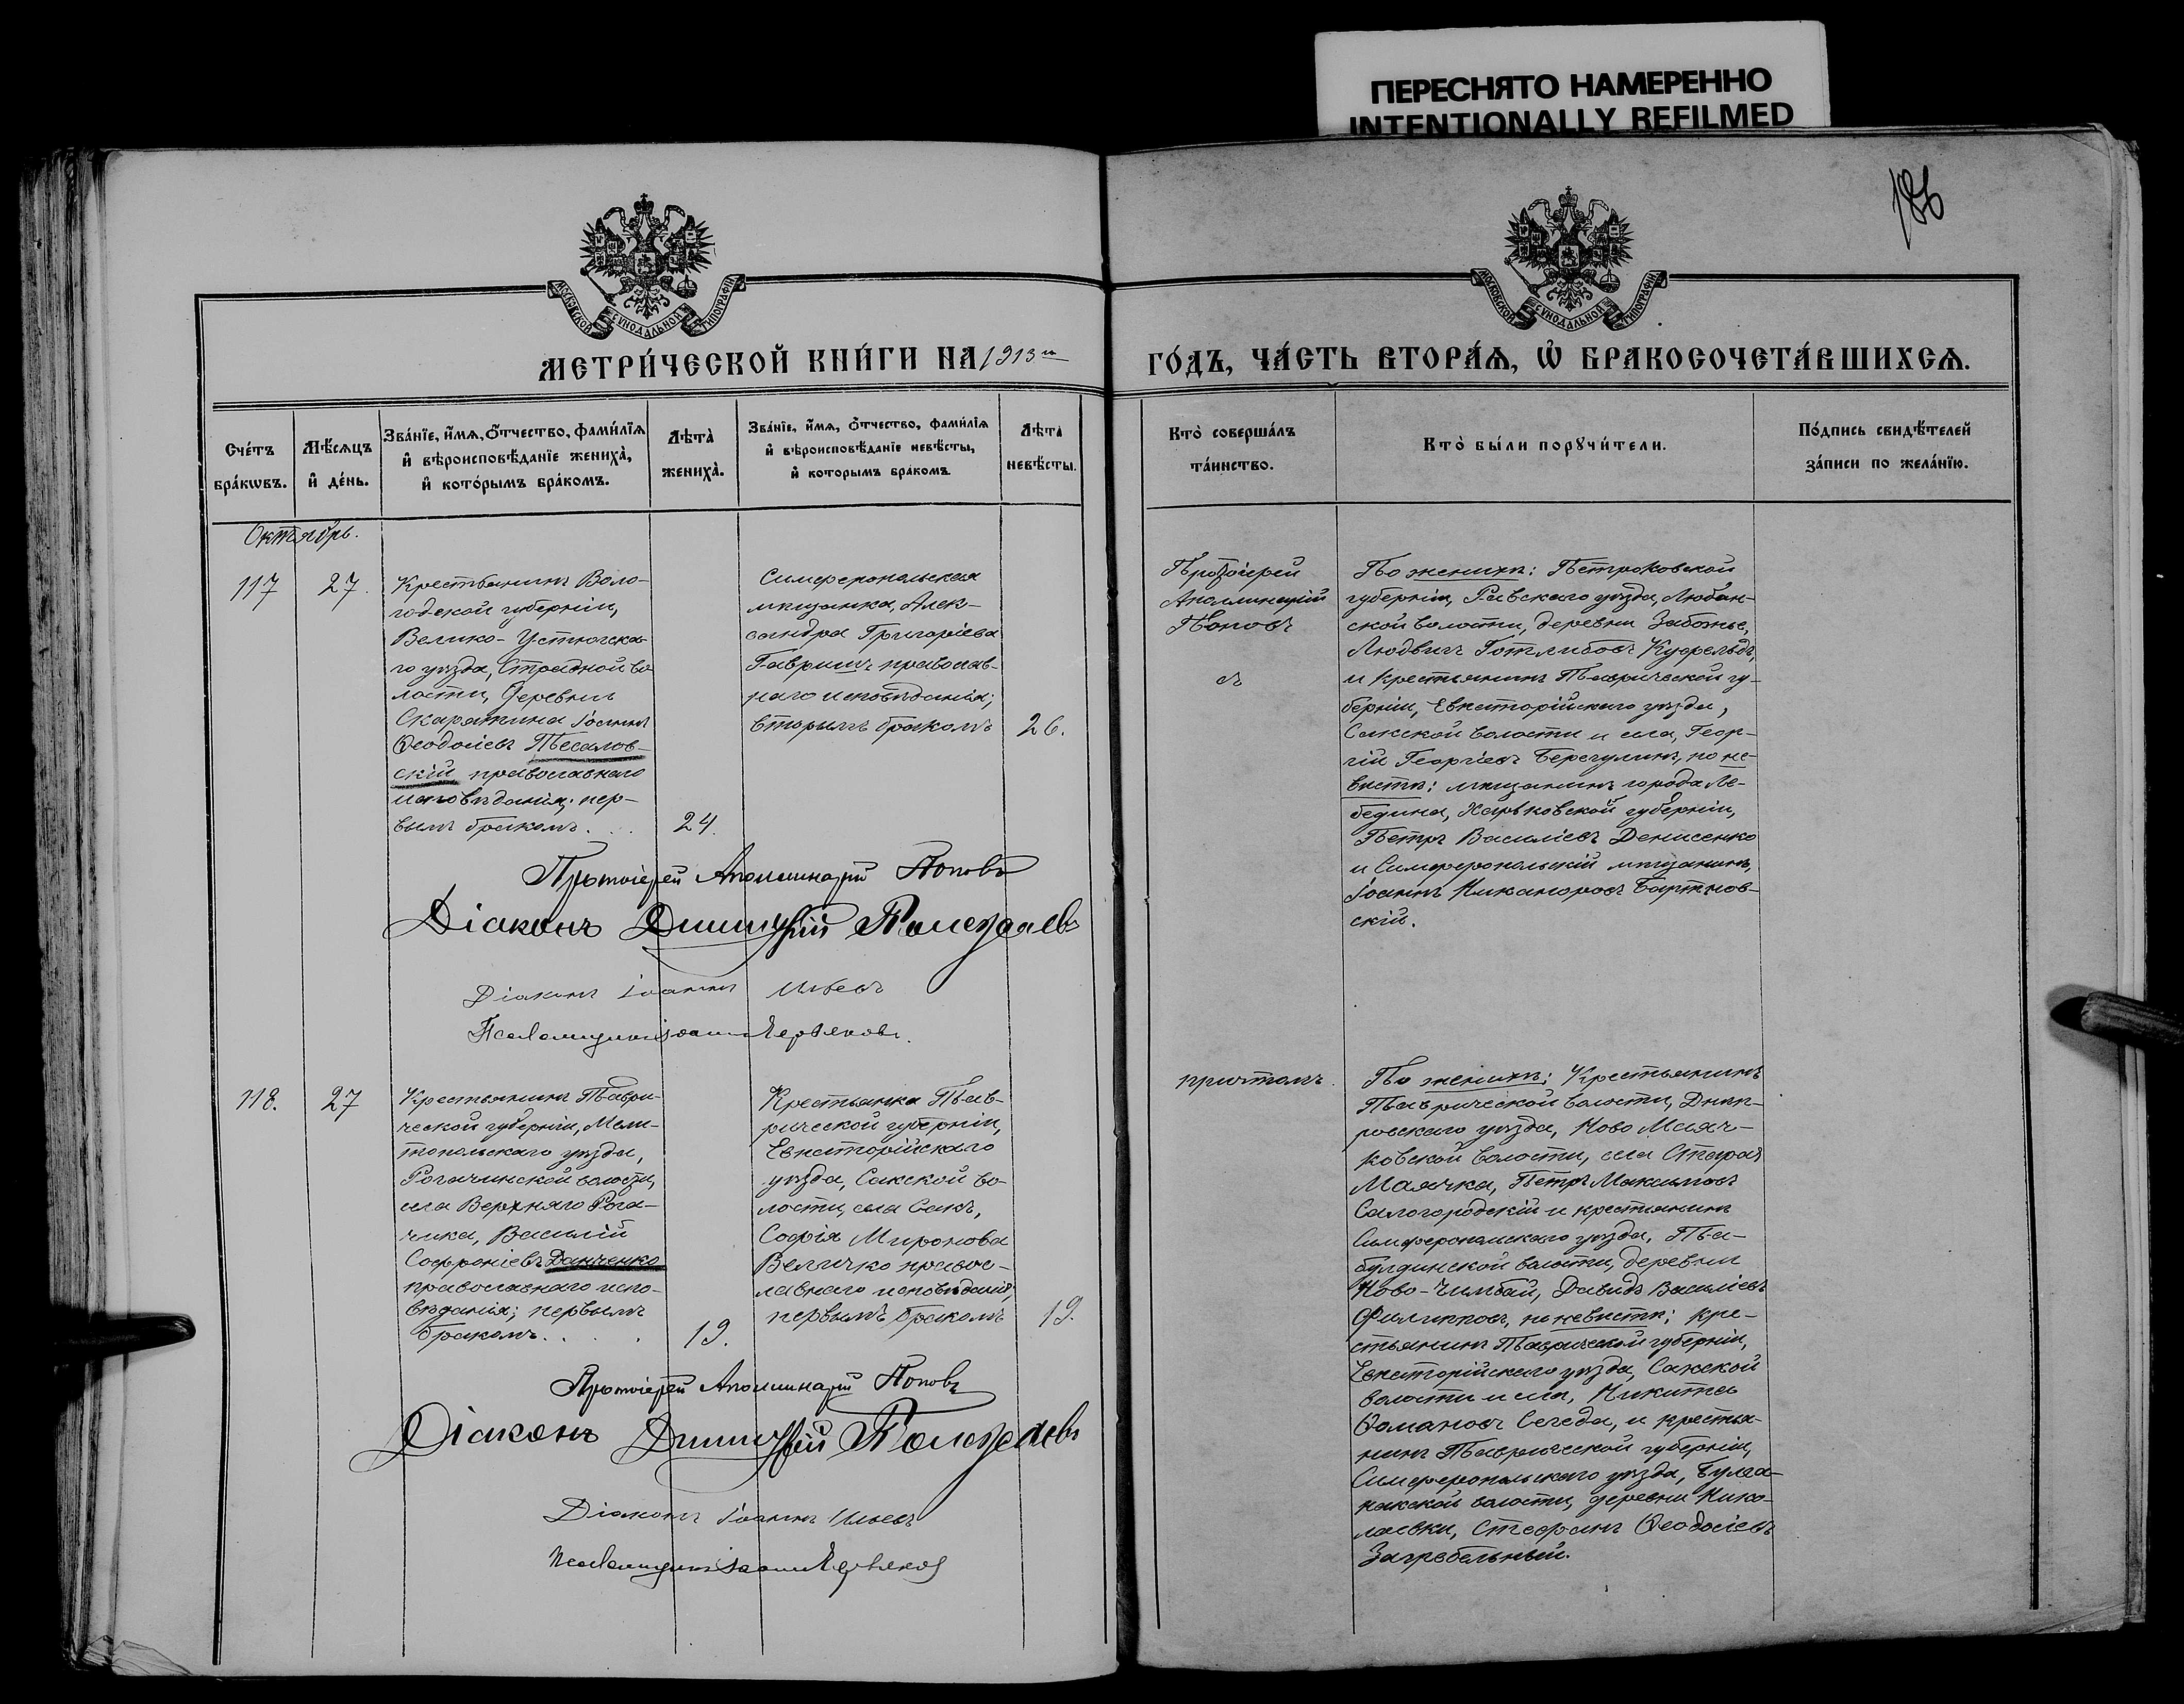 ПЕРЕСНЯТО НАМЕРЕННО
INTENTIONALLY REFILMED
186
МОСКОВСКОЙ СѴНОДАЛЬНОЙ ТИПОГРАФІИ
МОСКОВСКОЙ СѴНОДАЛЬНОЙ ТИПОГРАФІИ
МЕТРИ́ЧЕСКОЙ КНИ́ГИ НА 1913 й
ГО́ДЪ, ЧА́СТЬ ВТОРА́Ѧ, Ѽ БРАКОСОЧЕТА́ВШИХСѦ.
Сче́тъ
бра́кωвъ.
Мѣ́сѧцъ
и҆ де́нь.
Зва́нїе, и҆́мѧ, ѻ҆́тчество, фами́лїѧ
и҆ вѣроисповѣ́данїе жениха̀,
и҆ кото́рымъ бра́комъ.
Лѣта̀
жениха̀.
Зва́нїе, и҆́мѧ, ѻ҆́тчество, фами́лїѧ
и҆ вѣроисповѣ́данїе невѣ́сты,
и҆ которымъ бракомъ.
Лѣта
невѣ́сты.
Кто̀ соверша́лъ
та́инство.
Кто̀ бы́ли порꙋчи́тели.
По́дпись свидѣ́телей
за́писи по жела́нїю.
Октябрь.
117
27.
Крестьянинъ Воло-
годской губерніи,
Велико-Устюгска-
го уѣзда, Страдной во
лости, деревни
Скарятина Іоаннъ
Ѳеодосіевъ Песалов-
скій православнаго
исповѣданія; пер-
вымъ бракомъ. . .
24.
Симферопольская
мѣщанка, Алек-
сандра Григоріева
Гавришъ православ-
наго исповѣданія;
вторымъ бракомъ
26.
Протоіерей
Аполлинарій
Поповъ
съ
По женихѣ: Петроковской
губерніи, Равскаго уѣзда, Любан-
ской волости, деревни Заботье,
Людвигъ Готлибовъ Куфельдъ,
и крестьянинъ Таврической гу-
берніи, Евпаторійскаго уѣзда,
Сакской волости и села, Геор-
гій Георгіевъ Берегулинъ, по не-
вѣстѣ: мѣщанинъ города Ле-
бедина, Харьковской губерніи,
Петръ Василіевъ Денисенко
и Симферопольскій мѣщанинъ,
Іоаннъ Никаноровъ Бартнов-
скій.
Протоіерей Аполлинарій Поповъ
Діаконъ Димитрій
Діаконъ Іоаннъ Ильевъ
Псаломщикъ Іоаннъ Червяковъ.
118.
27
Крестьянинъ Таври-
ческой губерніи, Мели-
топольскаго уѣзда,
Рогачинской волости,
села Верхняго Рога-
чика, Василій
Софроніевъ Данченко
православнаго испо-
вѣданія; первымъ
бракомъ. . . .
19.
Крестьянка Тав-
рической губерніи,
Евпаторійскаго
уѣзда, Сакской во-
лости, села Сакъ,
Софія Миронова
Величко правос-
лавнаго исповѣданія,
первымъ бракомъ
19.
причтомъ.
По женихѣ: Крестьянинъ
Таврической волости, Днѣп-
ровскаго уѣзда, Ново Маяч-
ковской волости, села Старая
Маячка, Петръ Максимовъ
Салогородскій и крестьянинъ
Симферопольскаго уѣзда, Та-
булдинской волости, деревни
Ново-Чимбай, Давидъ Василіевъ
Филипповъ, по невѣстѣ: кре-
стьянинъ Таврической губерніи,
Евпаторійскаго уѣзда, Сакской
волости и села, Никита
Ѳомановъ Сегеда, и крестья-
нинъ Таврической губерніи,
Симферопольскаго уѣзда, Булга-
накской волости, деревни Нико-
лаевки, Стефанъ Ѳеодосіевъ
Загребельный.
Протоіерей Аполлинарій Поповъ
Діаконъ Димитрій
Діаконъ Іоаннъ Ильевъ
Псаломщикъ Іоаннъ Червяковъ